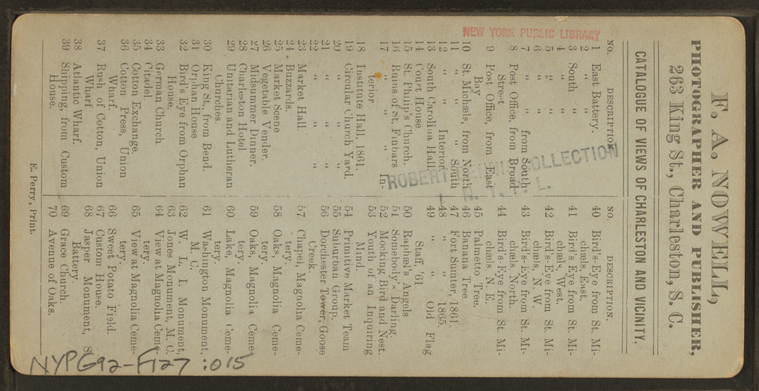 F. A. NOWELL,
PHOTOGRAPHER AND PUBLISHER,
263 King St., Charleston, S. C.
CATALOGUE OF VIEWS OF CHARLESTON AND VICINITY.
NO. DESCRIPTION.
1 East Battery.
2 " "
3 South "
4 " "
5 " "
6 " "
7 " " from South-
8 Post Office, from Broad
Street
9 Post Office, from East
Bay
10 St. Michaels, from North
11 " " South
12 " " Interior
13 South Carolina Hall.
14 Court House
15 St. Philip's Church.
16 Ruins of St. Finbars
17 " " " In-
terior
18 Institute Hall, 1861.
19 Circular Church Yard.
20 " " "
21 " " "
22 " " "
23 Market Hall.
24 Buzzards.
25 Market Scene
26 Vegetable Vender.
27 Midsummer Dinner.
28 Charleston Hotel
29 Unitarian and Lutheran
Churches
30 King St., from Bend.
31 Orphan House
32 Bird's Eye from Orphan
House.
33 German Church
34 Citadel
35 Cotton Exchange.
36 Cotton Press, Union
Wharf.
37 Rush of Cotton, Union
Wharf
38 Atlantic Wharf.
39 Shipping, from Custom
House.
NO. DESCRIPTION.
40 Bird's-Eye from St. Mi-
chaels, East.
41 Bird's-Eye from St. Mi-
chaels, West.
42 Bird's-Eye from St. Mi-
chaels, N. W.
43 Bird's-Eye from St. Mi-
chaels, North.
44 Bird's-Eye from St. Mi-
chaels, N. E.
45 Palmetto Tree.
46 Banana Tree
47 Fort Sumter, 1861.
48 " " 1865.
49 " " Old Flag
Staff, '61.
50 Raphael's Angels
51 Somebody's Darling.
52 Mocking Bird and Nest.
53 Youth of an Inquiring
Mind.
54 Primitive Market Team
55 Suburban Group.
56 Dorchester Tower, Goose
Creek.
57 Chapel, Magnolia Ceme-
tery
58 Oaks, Magnolia Ceme-
tery-
59 Oaks, Magnolia Ceme-
tery
60 Lake, Magnolia Ceme-
tery
61 Washington Monument,
M. C.
62 W. L. I. Monument,
63 Jones Monument, M. C.
64 View at Magnolia Ceme-
tery
65 View at Magnolia Ceme-
tery-
66 Sweet Potato Field.
67 Custom House.
68 Jasper Monument, S.
Battery.
69 Grace Church.
70 Avenue of Oaks.
E. Perry, Print.
NEW YORK PUBLIC LIBRARY
ROBERT COLLECTION
NYPG92-F127 :015